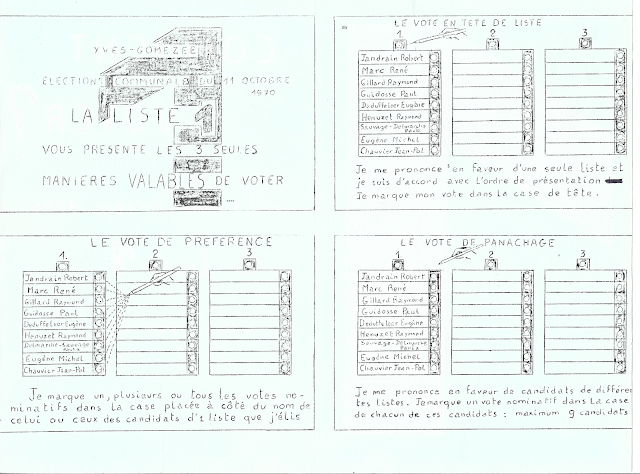 YVES-GOMEZEE
ELECTIONS COMMUNALES DU 11 OCTOBRE
1970
LA LISTE 1
VOUS PRESENTE LES 3 SEULES
MANIERES VALABLES DE VOTER
LE VOTE EN TETE DE LISTE
1 2 3
Jandrain Robert
Marc René
Gillard Raymond
Guidosse Paul
Deduffeleer Eugène
Henuzet Raymond
Sauvage-Delmarche
Paula
Eugène Michel
Chauvier Jean-Pol
Je me prononce en faveur d'une seule liste et
je suis d'accord avec l'ordre de présentation
Je marque mon vote dans la case de tête.
LE VOTE DE PREFERENCE
1. 2 3
Jandrain Robert
Marc René
Gillard Raymond
Guidosse Paul
Deduffeleer Eugène
Henuzet Raymond
Delmarche-Sauvage
Paula
Eugène Michel
Chauvier Jean-Pol
Je marque un, plusieurs ou tous les votes no-
minatifs dans la case placée à côté du nom de
celui ou ceux des candidats d'1 liste que j'élis
LE VOTE DE PANACHAGE
1. 2 3
Jandrain Robert
Marc René
Gillard Raymond
Guidosse Paul
Deduffeleer Eugène
Henuzet Raymond
Sauvage-Delmarche
Paula
Eugène Michel
Chauvier Jean-Pol
Je me prononce en faveur de candidats de différen
tes listes. Je marque un vote nominatif dans la case
de chacun de ces candidats : maximum 9 candidats